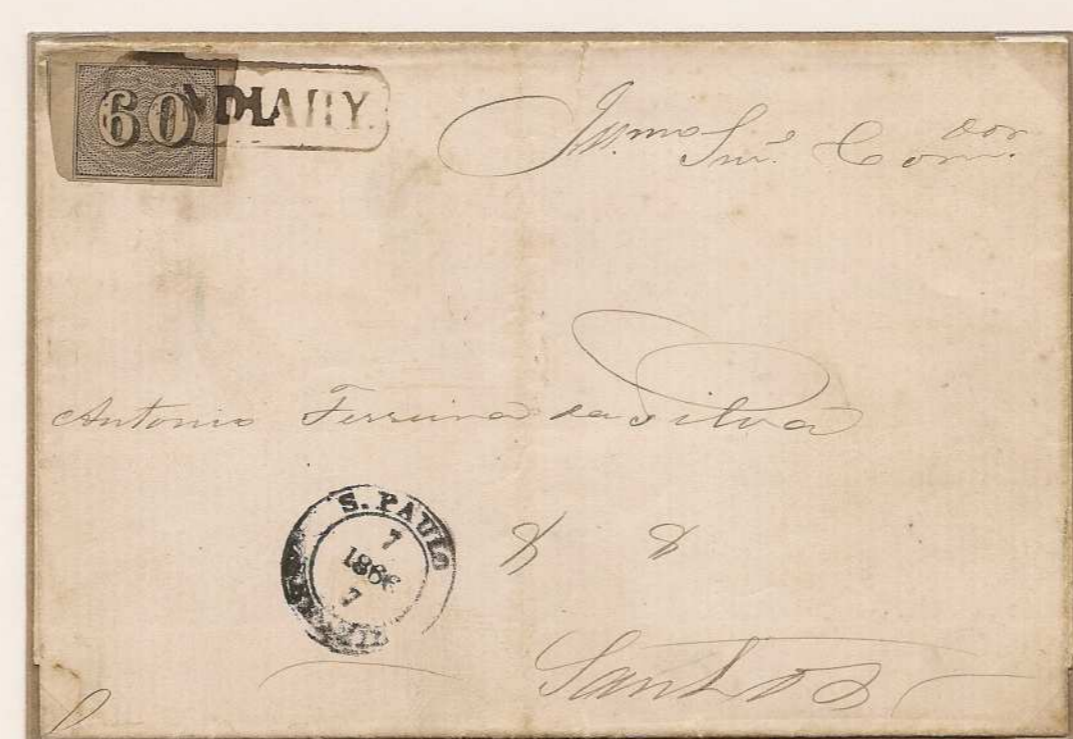 60 NDIAHY.
Illmo Snr. Com.dor
Antonio Ferreira da Silva
S. PAULO
7
1866
7
Santos